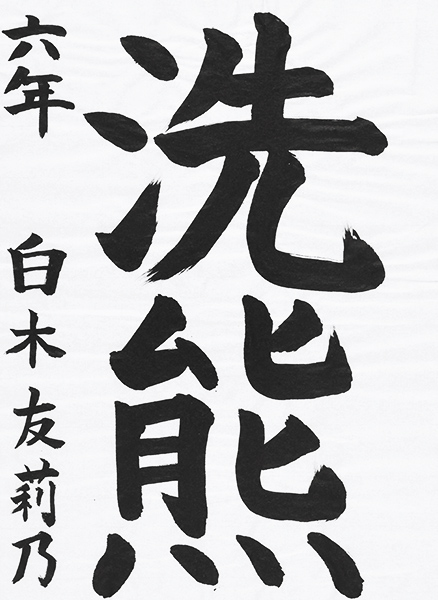 洗熊
六年 白木友莉乃